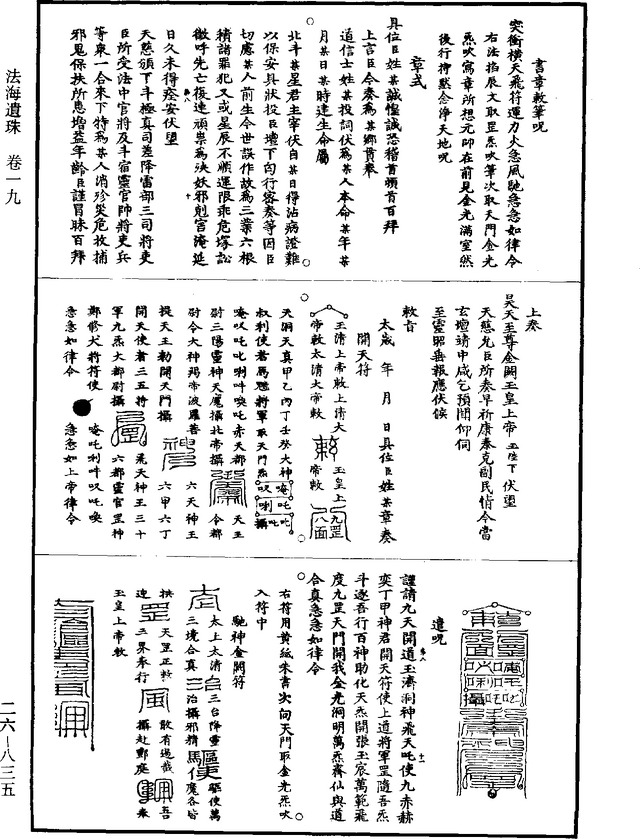 法海遺珠 卷一九
二六—八三五
書章敕筆呪
突衝橫天飛符運力火急風馳急急如律令
右法掐辰文取罡炁吹筆次取天門金光
炁吹寫章所想元帥在前見金光滿室然
後行持默念淨天地呪
章式
具位臣姓某誠惶誠恐稽首頓首百拜
上言臣今奏為某鄉貫奉
道信士姓某投詞伏為某人本命某年某
月某日某時建生命屬
北斗某星君主宰伏自某日得沾病證難
以保安具狀投臣壇下向行容奏等因臣
切慮某人前生今世誤作故為三業六根
積諸罪犯又或星辰不順運限乖危塚訟
徵呼先亡復連頑梟為殃妖邪剋害淹延
日久未得痊安伏望
天慈頒下斗極真司差降雷部三司將吏
臣所受法中官將及斗宿靈官帥將吏兵
等衆一合來下特為某人消殄災危收捕
邪鬼保扶所患增益年齡臣謹冒昧百拜
上奏
昊天至尊金闕玉皇上帝玉陛下伏望
天慈允臣所奏早祈康泰克副民情今當
玄壇靖中咸乞預聞仰伺
至靈昭垂報應伏候
敕旨
太歲 年 月 日具位臣姓某章奏
開天符
玉清上帝敕上清大
帝敕太清大帝敕
玉皇上
帝敕
九罡
八面
天洞天真甲乙丙丁壬癸大神
叔利使者馬騣將軍取天門炁
唵叹吒吡唎吽喚吒赤天都
天王
尉三陽靈神天魔攝北帝攝
令都
尉令大神羯帝波羅菩
六天神王
提天王勒開天門攝
六甲六丁
開天使者三五將
飛天神王三十
軍九炁大都尉攝
六都靈官罡神
鄭發犬將符使
唵吒唎吽叹吒喚
急急如律令
急急如上帝律令
遣呪
謹請九天開道玉濟洞神飛天吒使九赤赫
奕丁甲神君開天符使上道將軍罡隨吾炁
斗逐吾行百神助化天炁開張玉宸萬範飛
度九罡天門開我金光洞明萬炁齊仙與道
合真急急如律令
右符用黃紙朱書次向天門取金光炁吹
入符中
馳神金闕符
太上太清
三台降靈
驅使萬
三境合真
治攝邪精
魔各皆
拱
天罡正敕
散有過截
吾
違
三界奉行
攝赴酆庭
奉
玉皇上帝敕